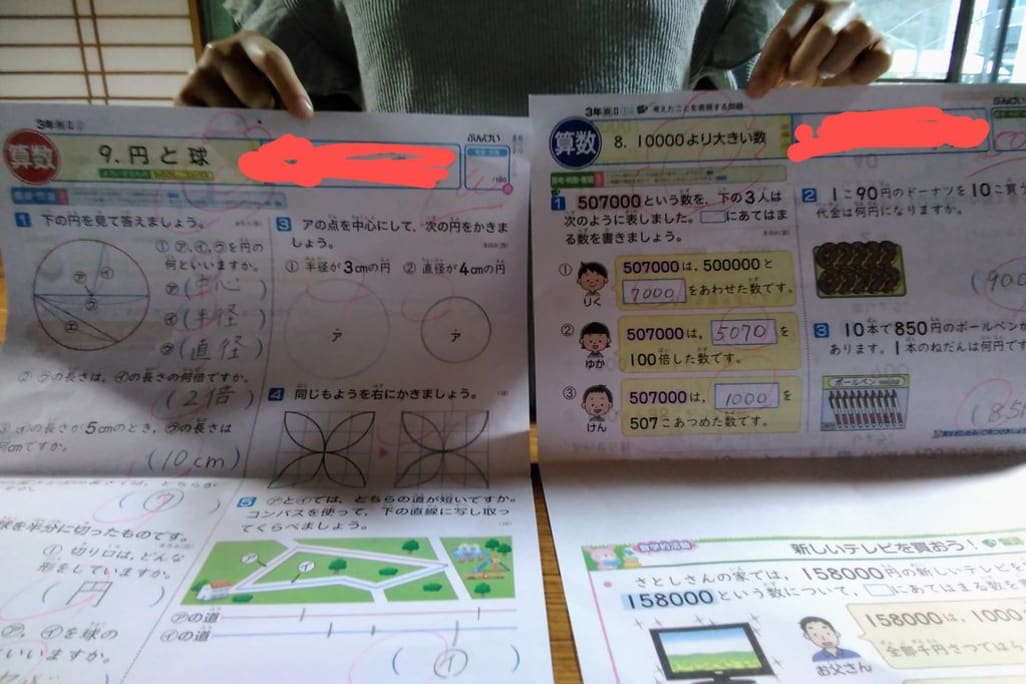 3年
算数
9. 円と球
ぶんけい
1 下の円を見て答えましょう。
① ㋐,㋑,㋒を円の
何といいますか。
㋐(中心)
㋑(半径)
㋒(直径)
② ㋒の長さは,㋑の長さの何倍ですか。
(2倍)
③ ㋑の長さが5cmのとき,㋒の長さは
何cmですか。
(10cm)
(㋒)
球を半分に切ったものです。
① 切り口は,どんな
形をしていますか。
(円)
㋐,㋑を球の
いいますか。
3 アの点を中心にして,次の円をかきま
しょう。
① 半径が3cmの円 ② 直径が4cmの円
ア
ア
4 同じもようを右にかきましょう。
5 ㋐と㋑では,どちらの道が短いですか。
コンパスを使って,下の直線に写し取っ
てくらべましょう。
㋐
㋑
㋐の道
㋑の道
(㋑)
3年
考えたことを表現する問題
ぶんけい
算数
8. 10000より大きい数
1 507000という数を,下の3人は
次のように表しました。□にあてはま
る数を書きましょう。
① りく
507000は,500000と
7000 をあわせた数です。
② ゆか
507000は, 5070 を
100倍した数です。
③ けん
507000は, 1000 を
507こあつめた数です。
2 1こ90円のドーナツを10こ買う
代金は何円になりますか。
(900
3 10本で850円のボールペンが
あります。1本のねだんは何円です
ボールペン
(85
新しいテレビを買おう!
さとしさんの家では,158000円の新しいテレビを
158000という数について,□にあてはまる数を
お父さん
158000は,1000
全部千円さつではら